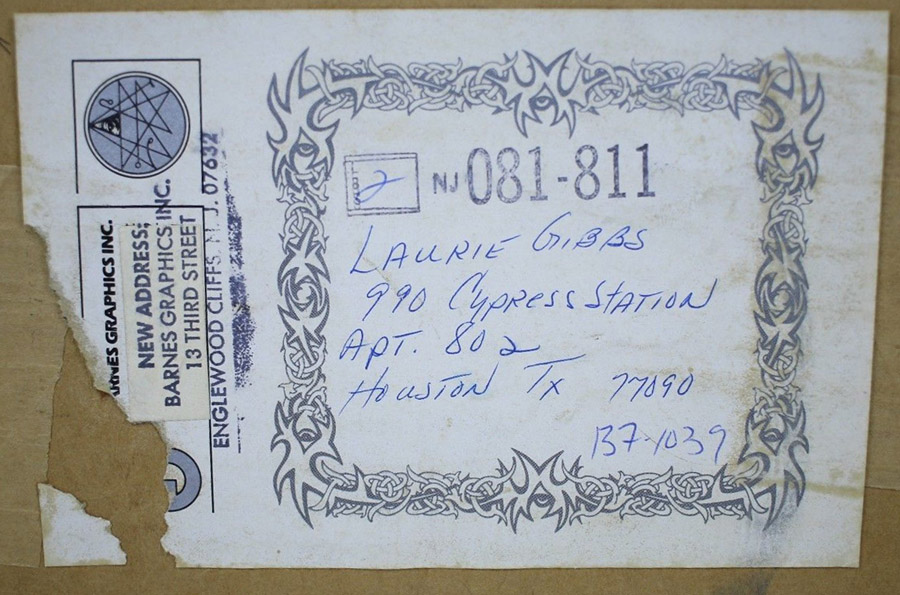 BARNES GRAPHICS INC.
NEW ADDRESS:
BARNES GRAPHICS INC.
13 THIRD STREET
ENGLEWOOD CLIFFS, N.J. 07632
2
NJ 081-811
LAURIE GIBBS
990 CYPRESS STATION
APT. 802
HOUSTON TX 77090
B7-1039